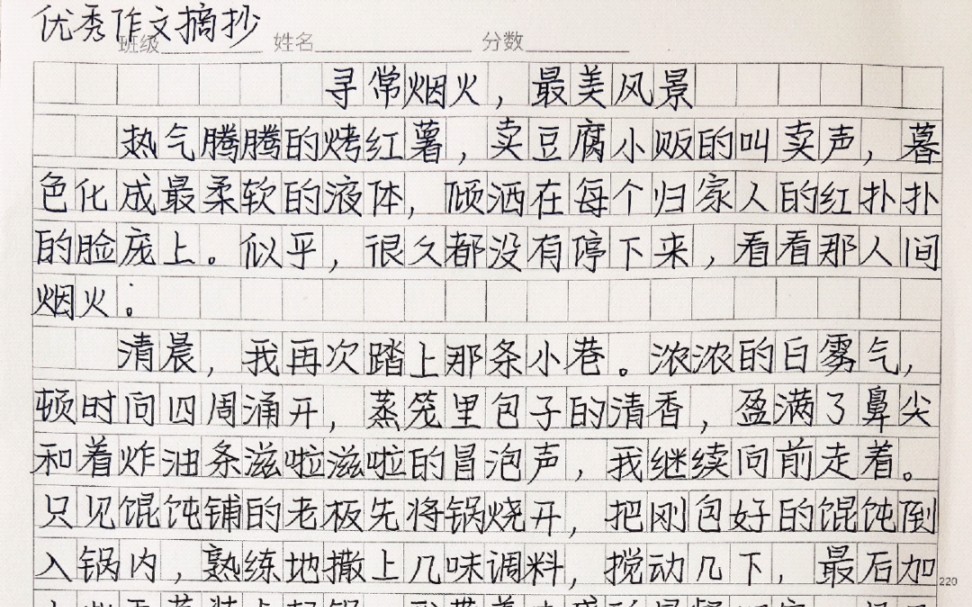 优秀作文摘抄
班级 姓名 分数
寻常烟火，最美风景
热气腾腾的烤红薯，卖豆腐小贩的叫卖声，暮
色化成最柔软的液体，倾洒在每个归家人的红扑扑
的脸庞上。似乎，很久都没有停下来，看看那人间
烟火；
清晨，我再次踏上那条小巷。浓浓的白雾气，
顿时向四周涌开，蒸笼里包子的清香，盈满了鼻尖
和着炸油条滋啦滋啦的冒泡声，我继续向前走着。
只见馄饨铺的老板先将锅烧开，把刚包好的馄饨倒
入锅内，熟练地撒上几味调料，搅动几下，最后加
220